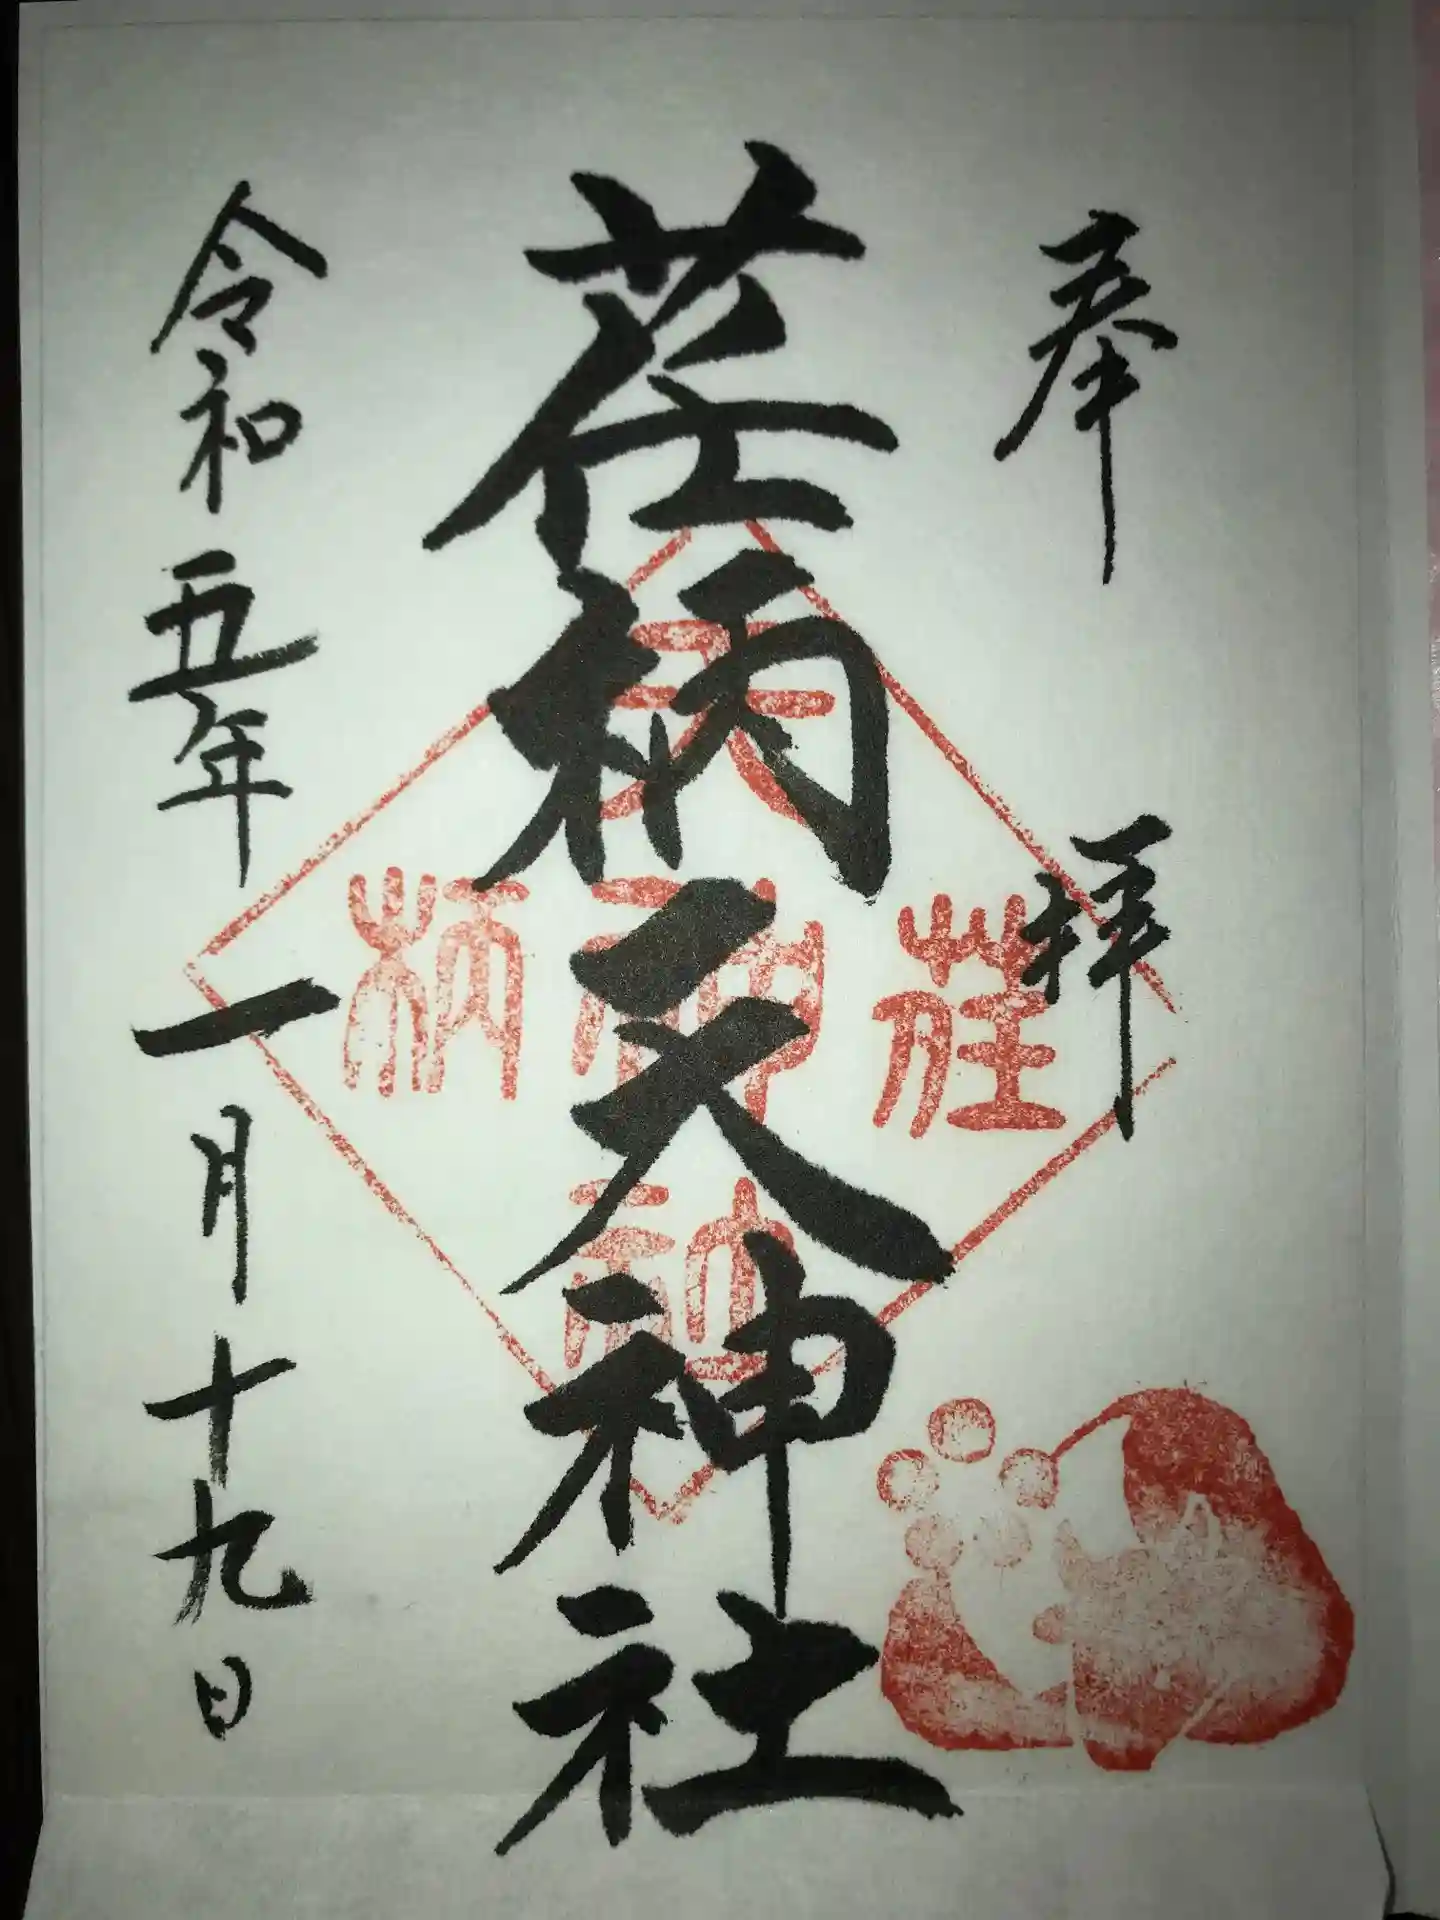 奉拝
荏柄天神社
令和五年一月十九日
天
荏神柄
社